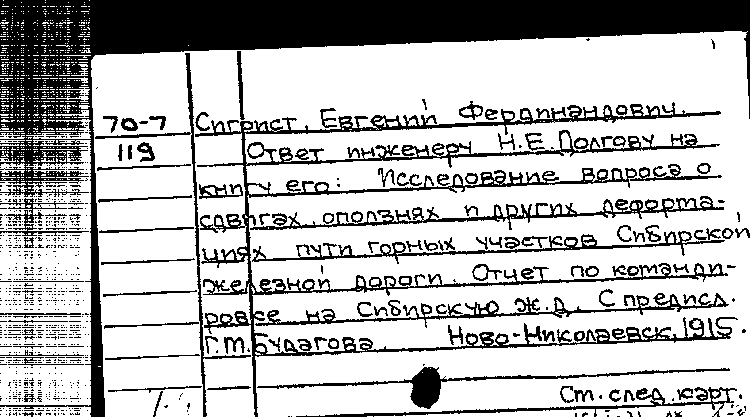 70-7 Сигрист, Евгений Фердинандович.
119 Ответ инженеру Н.Е.Долгову на
книгу его: Исследование вопроса о
сдвигах, оползнях и других деформа-
циях пути горных участков Сибирской
железной дороги. Отчет по команди-
ровке на Сибирскую ж.д. С предисл.
Г.М.Будагова. Ново-Николаевск, 1915.
См. след. карт.